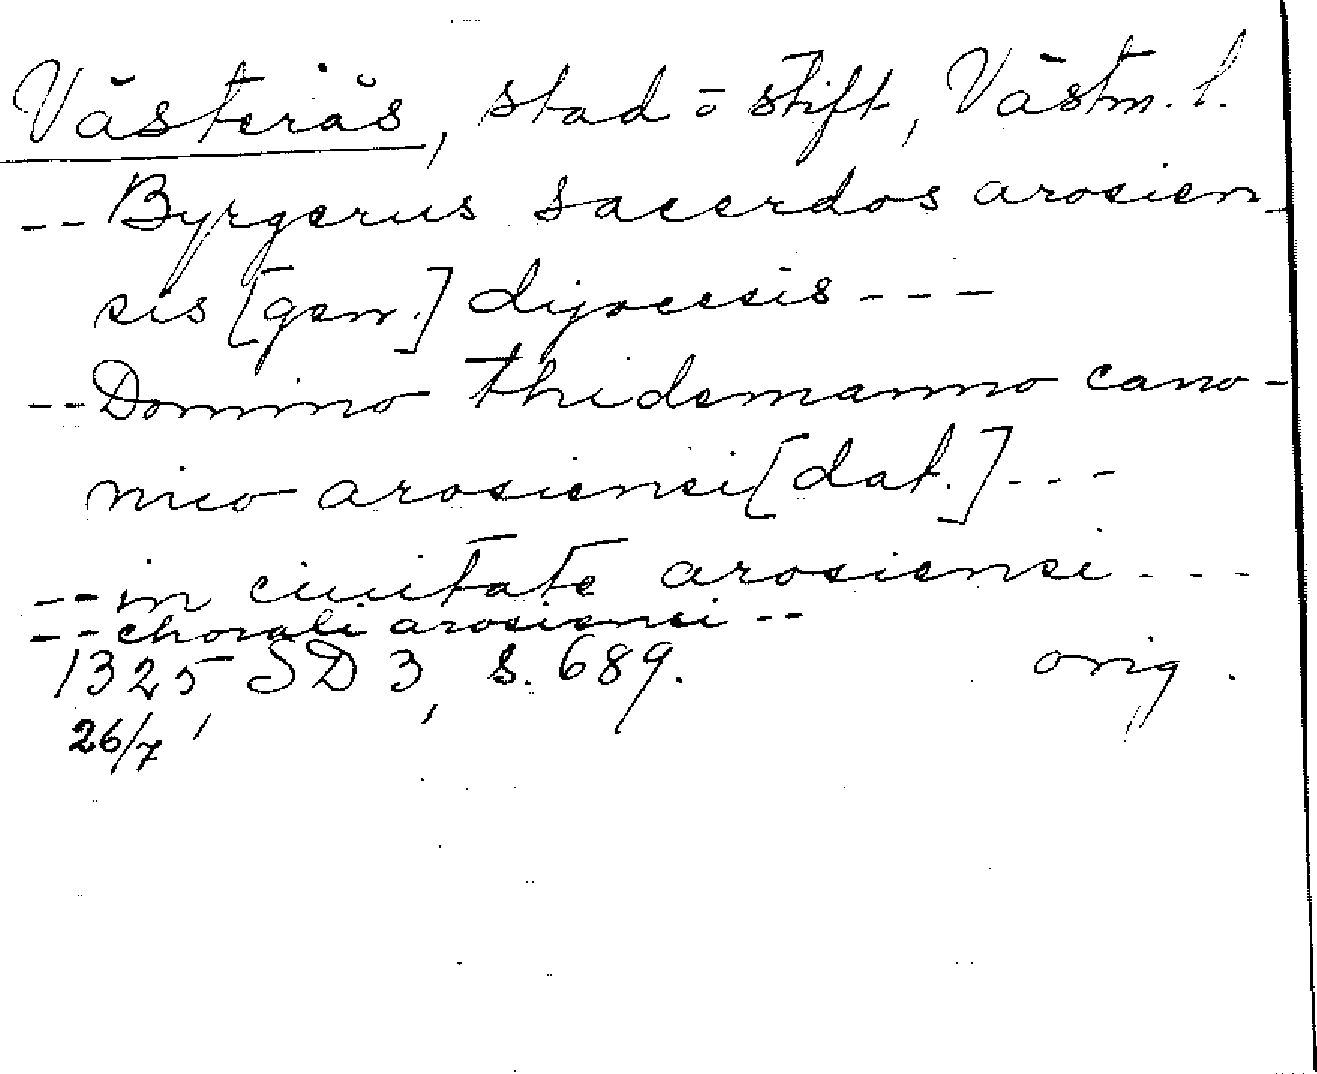 Västerås, stad o stift, Västm. l.
-- Byrgerus sacerdos arosien-
sis [gen.] dyocesis ---
-- Domino thidemanno cano-
nico arosiensi [dat.] ---
-- in ciuitate arosiensi ---
-- chorali arosiensi --
1325 SD 3, s. 689. orig.
26/7